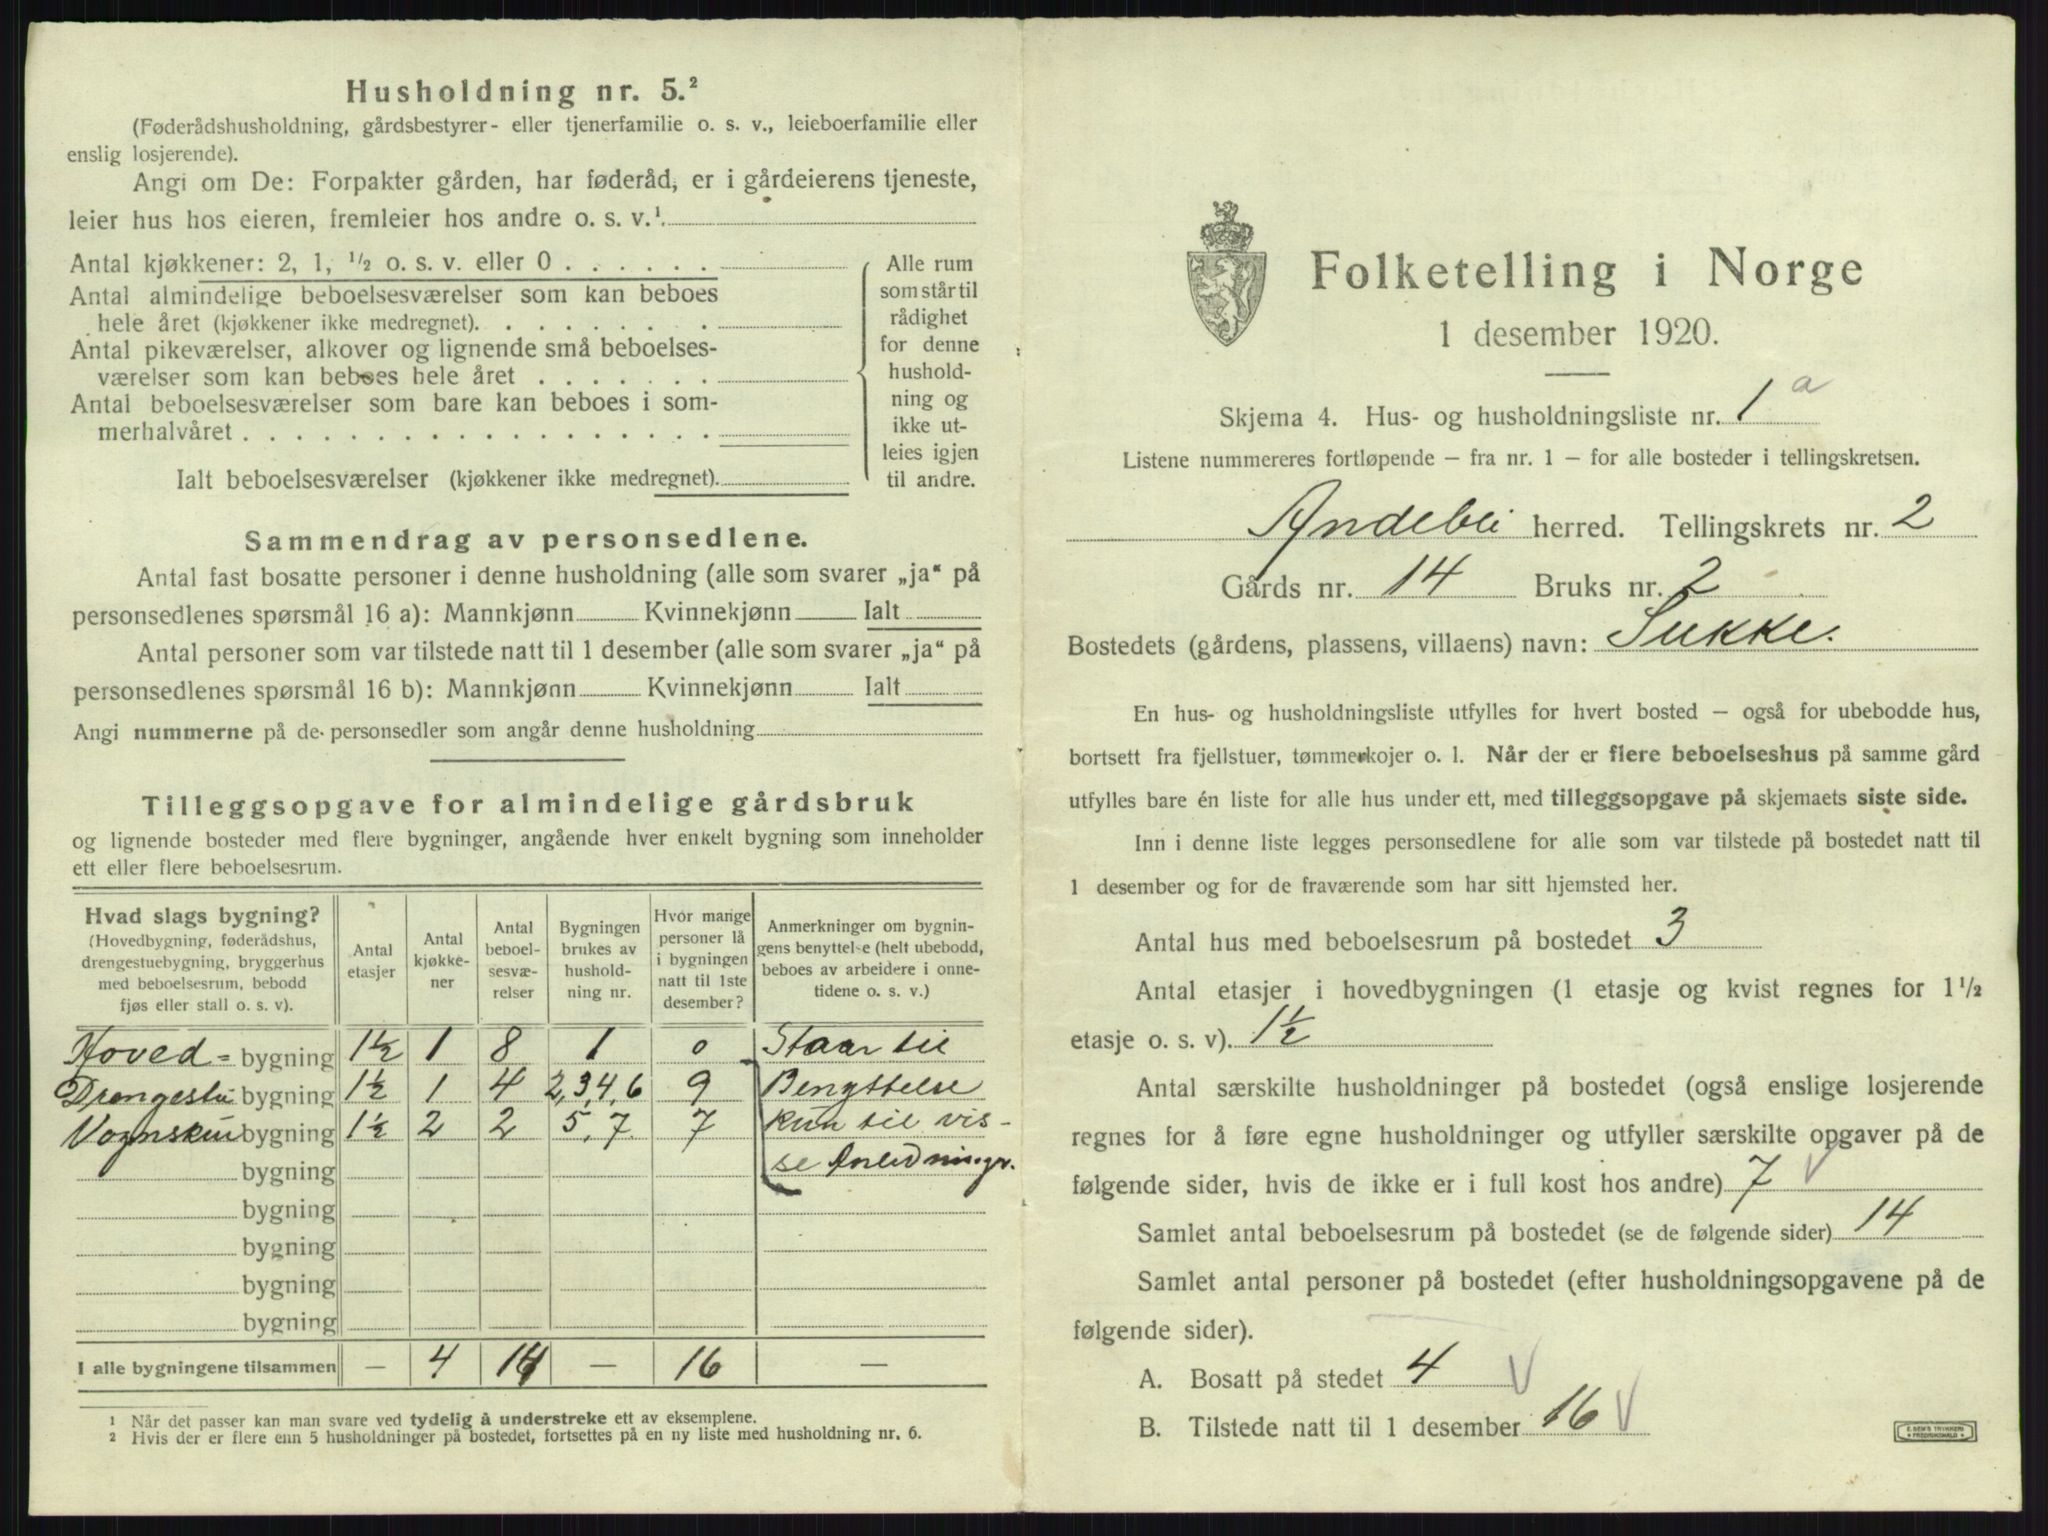 Husholdning nr. 5.²
(Føderådshusholdning, gårdsbestyrer- eller tjenerfamilie o. s. v., leieboerfamilie eller
enslig losjerende).
Angi om De: Forpakter gården, har føderåd, er i gårdeierens tjeneste,
leier hus hos eieren, fremleier hos andre o. s. v.¹
Antal kjøkkener: 2, 1, ½ o. s. v. eller 0 . . . . . .
Antal almindelige beboelsesværelser som kan beboes
hele året (kjøkkener ikke medregnet). . . . . . . . .
Antal pikeværelser, alkover og lignende små beboelses-
værelser som kan beboes hele året . . . . . . .
Antal beboelsesværelser som bare kan beboes i som-
merhalvåret . . . . . . . . . . . . . . . . . .
Ialt beboelsesværelser (kjøkkener ikke medregnet).
Alle rum
som står til
rådighet
for denne
hushold-
ning og
ikke ut-
leies igjen
til andre.
Sammendrag av personsedlene.
Antal fast bosatte personer i denne husholdning (alle som svarer „ja“ på
personsedlenes spørsmål 16 a): Mannkjønn Kvinnekjønn Ialt
Antal personer som var tilstede natt til 1 desember (alle som svarer „ja“ på
personsedlenes spørsmål 16 b): Mannkjønn Kvinnekjønn Ialt
Angi nummerne på de personsedler som angår denne husholdning
Tilleggsopgave for almindelige gårdsbruk
og lignende bosteder med flere bygninger, angående hver enkelt bygning som inneholder
ett eller flere beboelsesrum.
Hvad slags bygning?
(Hovedbygning, føderådshus,
drengestuebygning, bryggerhus
med beboelsesrum, bebodd
fjøs eller stall o. s. v).
Antal
etasjer
Antal
kjøkke-
ner
Antal
beboel-
sesvæ-
relser
Bygningen
brukes av
hushold-
ning nr.
Hvor mange
personer lå
i bygningen
natt til 1ste
desember?
Anmerkninger om bygnin-
gens benyttelse (helt ubebodd,
beboes av arbeidere i onne-
tidene o. s. v.)
Hoved= bygning 1½ 1 8 1 0 Staar til
Drengestu bygning 1½ 1 4 2,3,4,6 9 Benyttelse
Vognskur bygning 1½ 2 2 5,7 7 kun til vis-
bygning se Anledninger.
bygning
bygning
bygning
bygning
I alle bygningene tilsammen — 4 14 — 16 —
¹ Når det passer kan man svare ved tydelig å understreke ett av eksemplene.
² Hvis der er flere enn 5 husholdninger på bostedet, fortsettes på en ny liste med husholdning nr. 6.
Folketelling i Norge
1 desember 1920.
Skjema 4. Hus- og husholdningsliste nr. 1 a
Listene nummereres fortløpende – fra nr. 1 – for alle bosteder i tellingskretsen.
Andebu herred. Tellingskrets nr. 2
Gårds nr. 14 Bruks nr. 2
Bostedets (gårdens, plassens, villaens) navn: Sukke.
En hus- og husholdningsliste utfylles for hvert bosted – også for ubebodde hus,
bortsett fra fjellstuer, tømmerkojer o. l. Når der er flere beboelseshus på samme gård
utfylles bare én liste for alle hus under ett, med tilleggsopgave på skjemaets siste side.
Inn i denne liste legges personsedlene for alle som var tilstede på bostedet natt til
1 desember og for de fraværende som har sitt hjemsted her.
Antal hus med beboelsesrum på bostedet 3
Antal etasjer i hovedbygningen (1 etasje og kvist regnes for 1½
etasje o. s. v). 1½
Antal særskilte husholdninger på bostedet (også enslige losjerende
regnes for å føre egne husholdninger og utfyller særskilte opgaver på de
følgende sider, hvis de ikke er i full kost hos andre) 7 V
Samlet antal beboelsesrum på bostedet (se de følgende sider) 14
Samlet antal personer på bostedet (efter husholdningsopgavene på de
følgende sider).
A. Bosatt på stedet 4 V
B. Tilstede natt til 1 desember 16 V
E. SEM'S TRYKKERI
FREDRIKSHALD